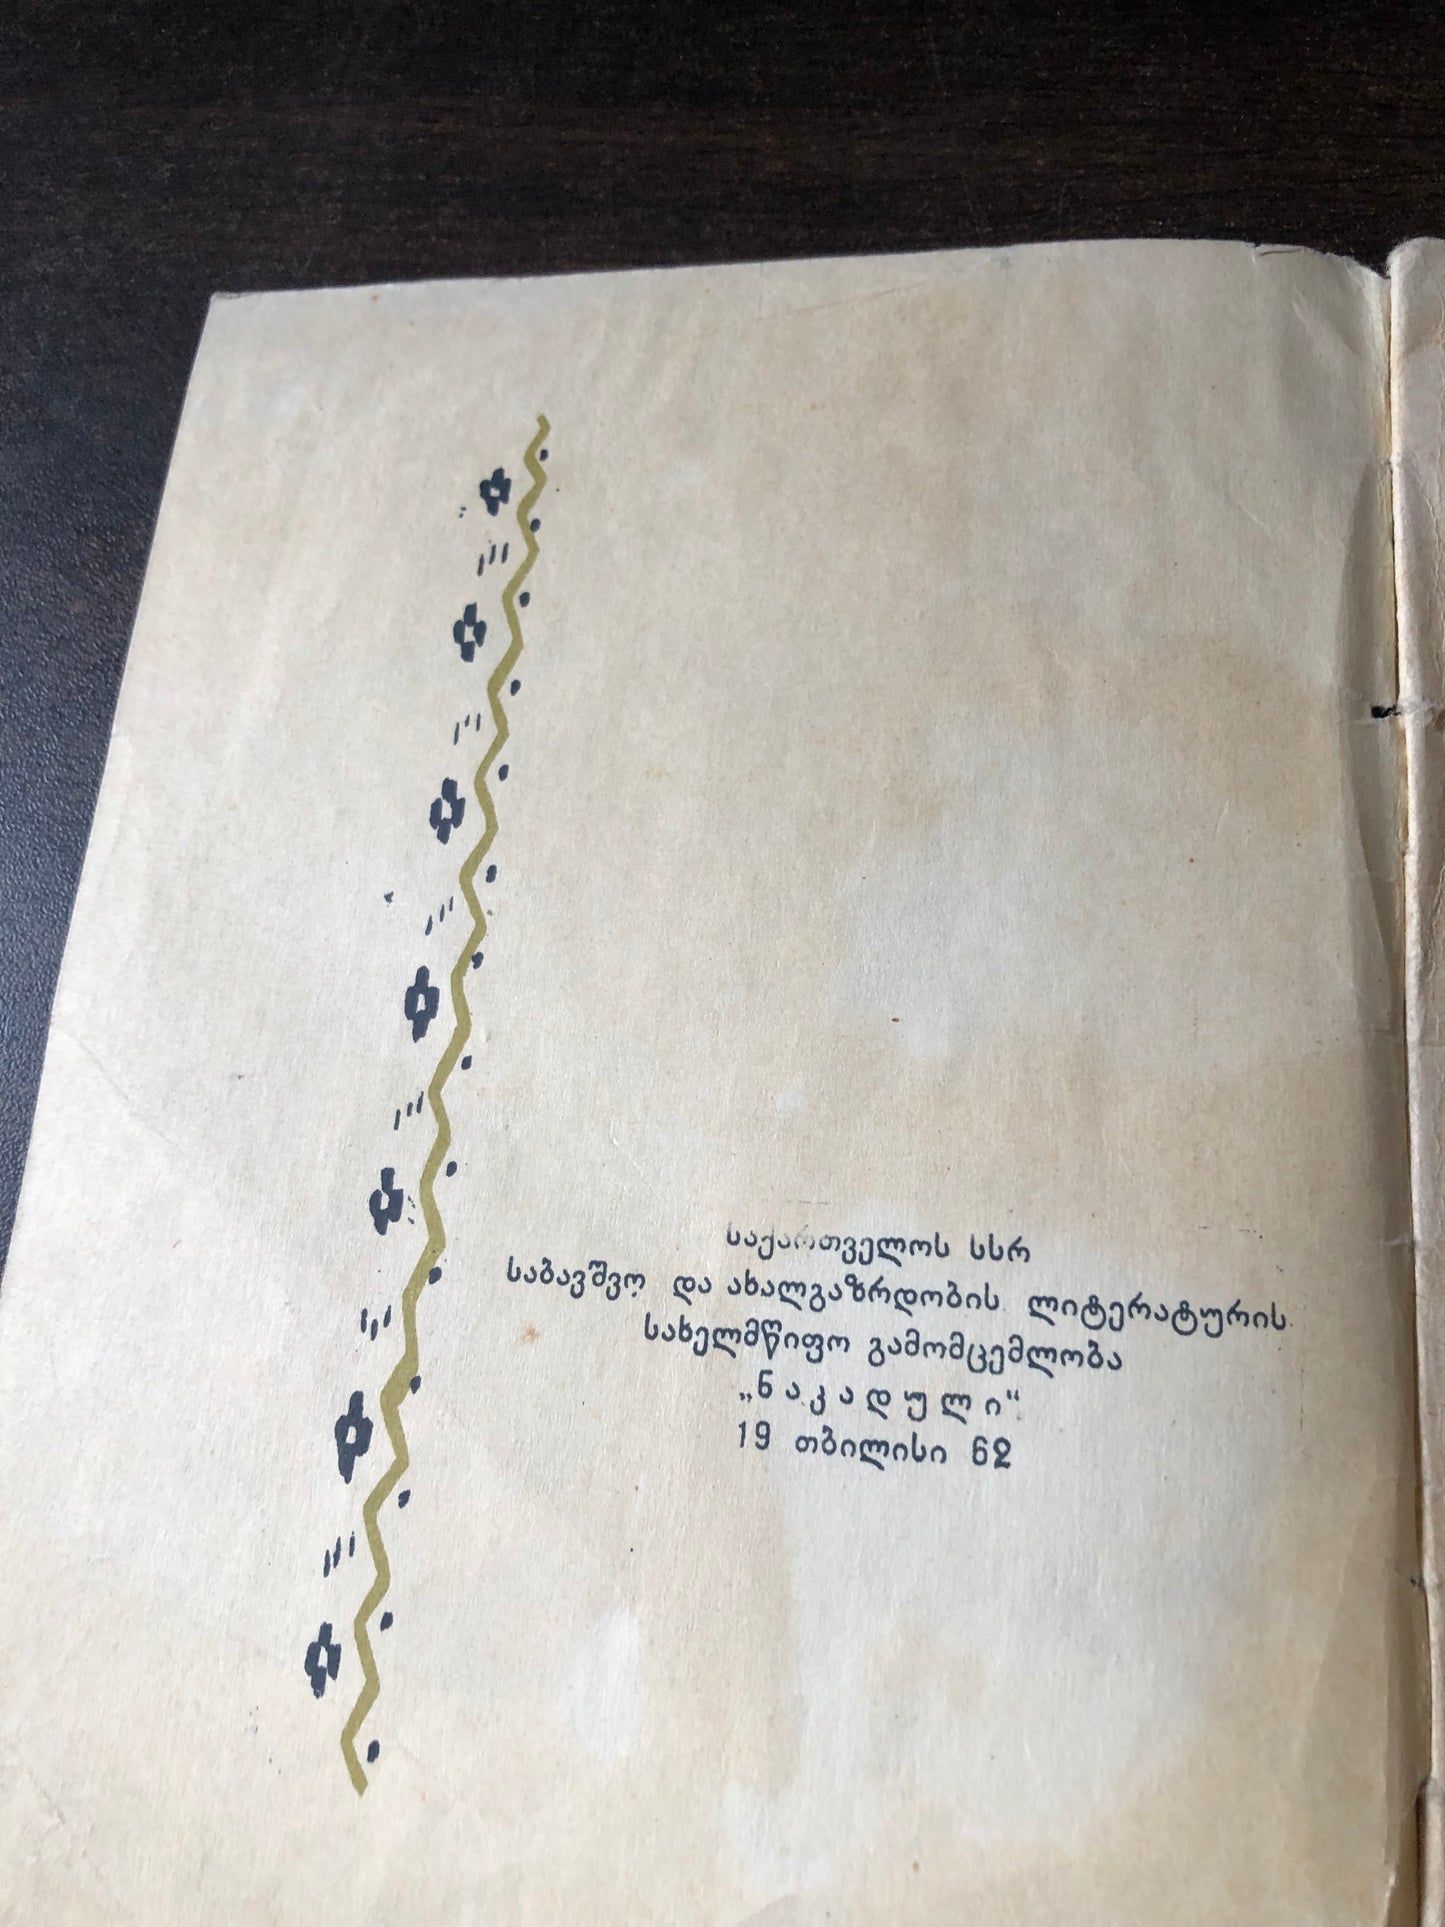 საქართველოს სსრ
საბავშვო და ახალგაზრდობის ლიტერატურის
სახელმწიფო გამომცემლობა
„ნაკადული“
19 თბილისი 62